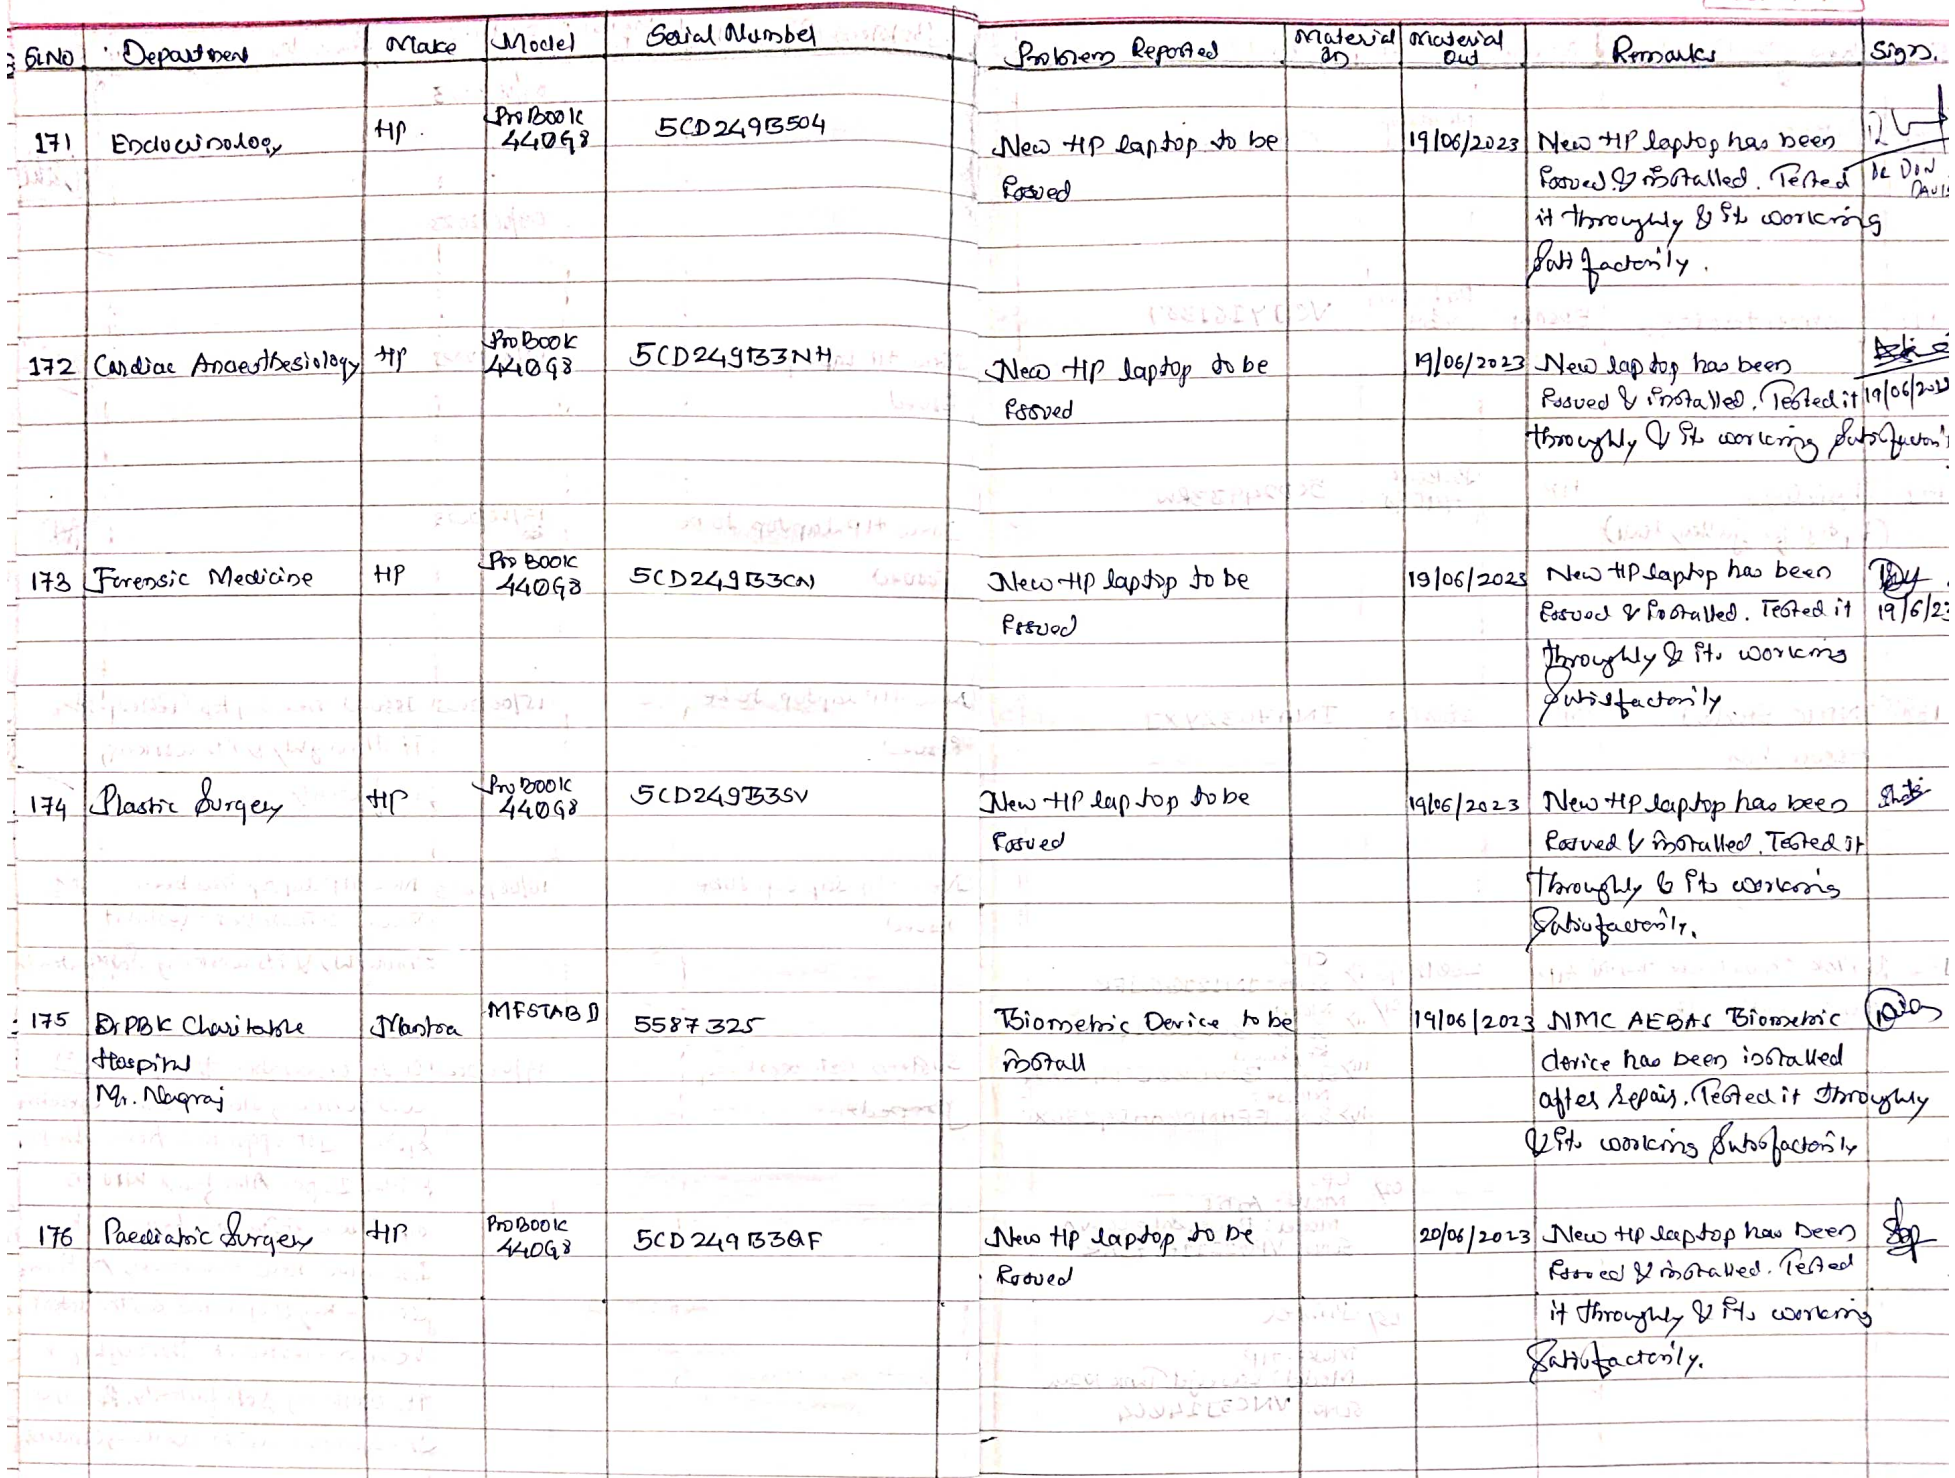 Sl.No Department Make Model Serial Number Problem Reported Material In Material Out Remarks Sign.
171 Endocrinology HP ProBook 440G8 5CD249B504 New HP laptop to be 19/06/2023 New HP laptop has been
Issued Issued & installed. Tested Dr DON DAVIS
it throughly & its working
Satisfactorily.
172 Cardiac Anaesthesiology HP ProBook 440G8 5CD249B3NH New HP laptop to be 19/06/2023 New laptop has been
Issued Issued & installed. Tested it 19/06/2023
throughly & its working Satisfactori
173 Forensic Medicine HP ProBook 440G8 5CD249B3CN New HP laptop to be 19/06/2023 New HP laptop has been
Issued Issued & installed. Tested it 19/6/23
throughly & its working
Satisfactorily.
174 Plastic Surgery HP ProBook 440G8 5CD249B3SV New HP laptop to be 19/06/2023 New HP laptop has been
Issued Issued & installed. Tested it
throughly & its working
Satisfactorily.
175 Dr PBK Charitable Mantra MFSTAB II 5587325 Biometric Device to be 19/06/2023 NMC AEBAS Biometric
Hospital install device has been installed
Mr. Nagraj after repair. Tested it throughly
& its working Satisfactorily
176 Paediatric Surgery HP ProBook 440G8 5CD249B3QF New HP laptop to be 20/06/2023 New HP laptop has been
Issued Issued & installed. Tested
it throughly & its working
Satisfactorily.